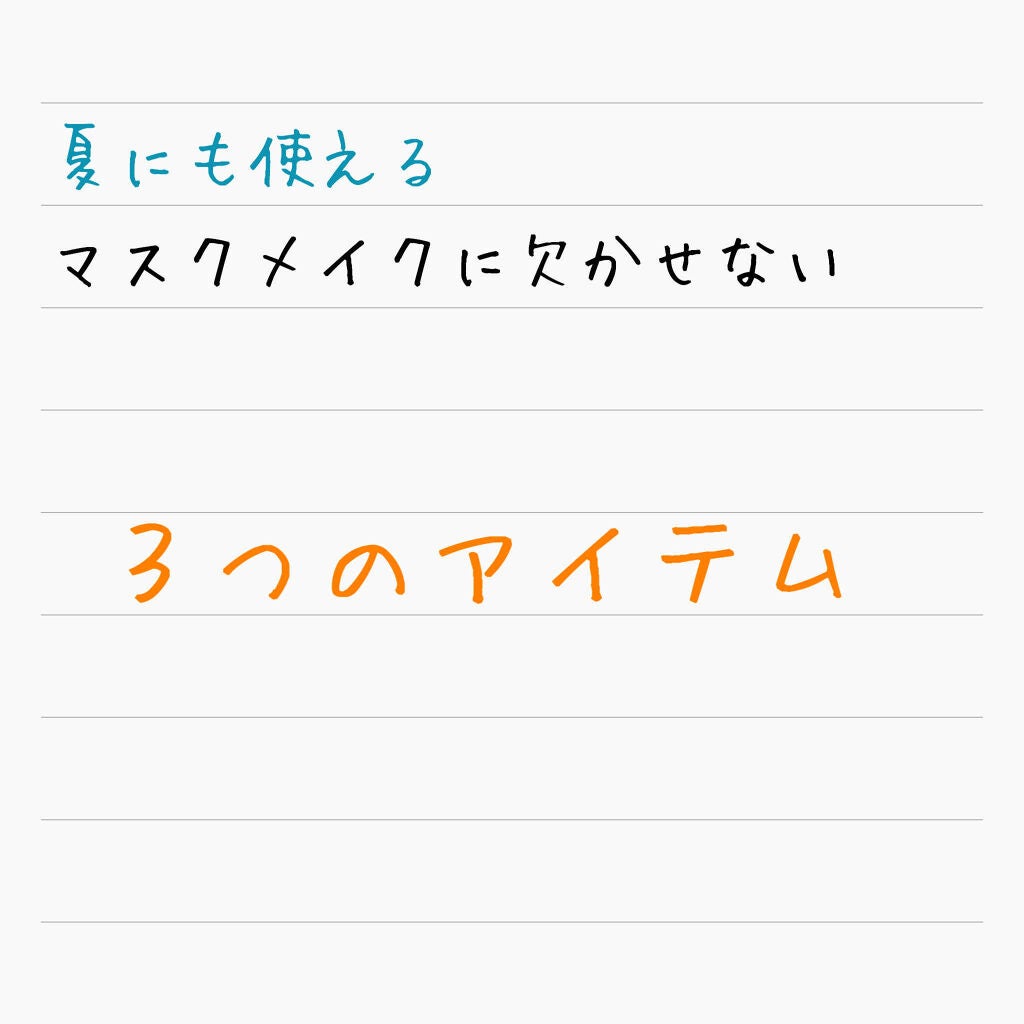 夏にも使える
マスクメイクに欠かせない
3つのアイテム